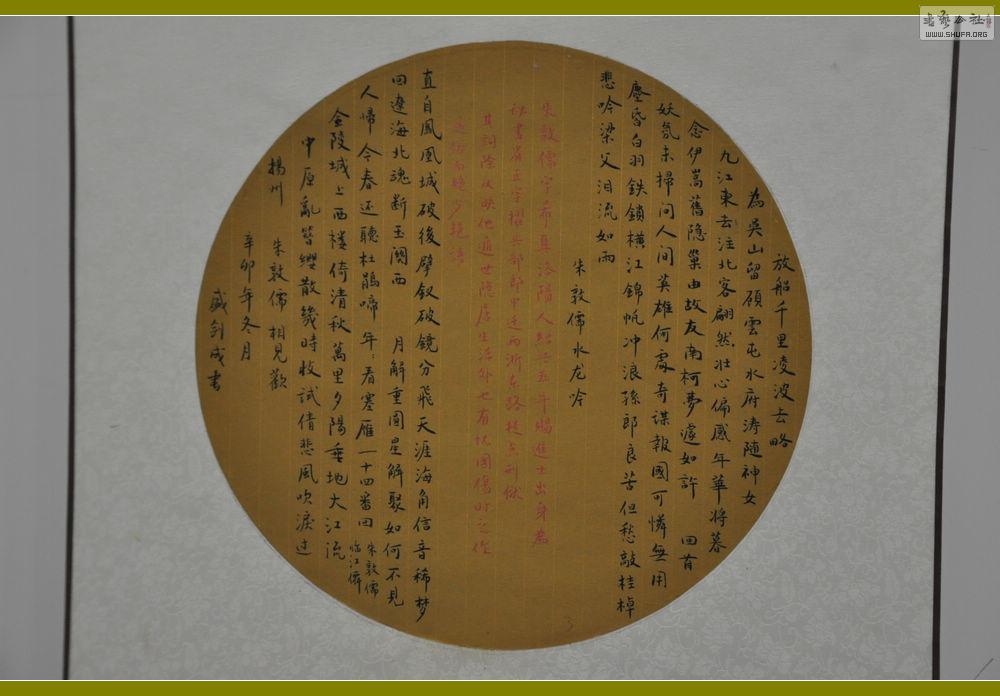 放船千里凌波去略
為吳山留顧雲屯水府涛随神女
九江東去注北客翩然壮心偏感年華將暮
念伊嵩舊隐巢由故友南柯夢遽如許 回首
妖氛未掃問人间英雄何處奇謀報國可憐無用
塵昏白羽鉄鎖横江錦帆冲浪孫郎良苦但愁敲桂棹
悲吟梁父泪流如雨
朱敦儒水龙吟
朱敦儒字希真洛陽人紹兴五年賜進士出身為
秘書省正字擢兵部郎中迁两浙东路提点刑獄
其詞除反映他遁世隐居生活外也有忧国傷时之作
少艳语
直自鳳凰城破後擘釵破鏡分飛天涯海角信音稀梦
回遼海北魂断玉關西 月解重圓星解聚如何不見
人歸今春还聽杜鵑啼年:看塞雁一十四番回 朱敦儒
临江僊
金陵城上西楼倚清秋萬里夕陽垂地大江流
中原亂簪缨散幾時收試倩悲風吹淚过
揚州 朱敦儒 相見歡
辛卯年冬月
盛剑成書
书艺公社
WWW.SHUFA.ORG